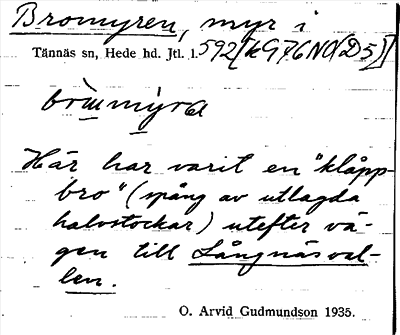 Bromyren, myr i
Tännäs sn, Hede hd. Jtl. l. 592[kG976NO(D5)]
Här har varit en "klåpp-
bro" (spång av utlagda
halvstockar) utefter vä-
gen till Långnäsval-
len.
O. Arvid Gudmundson 1935.